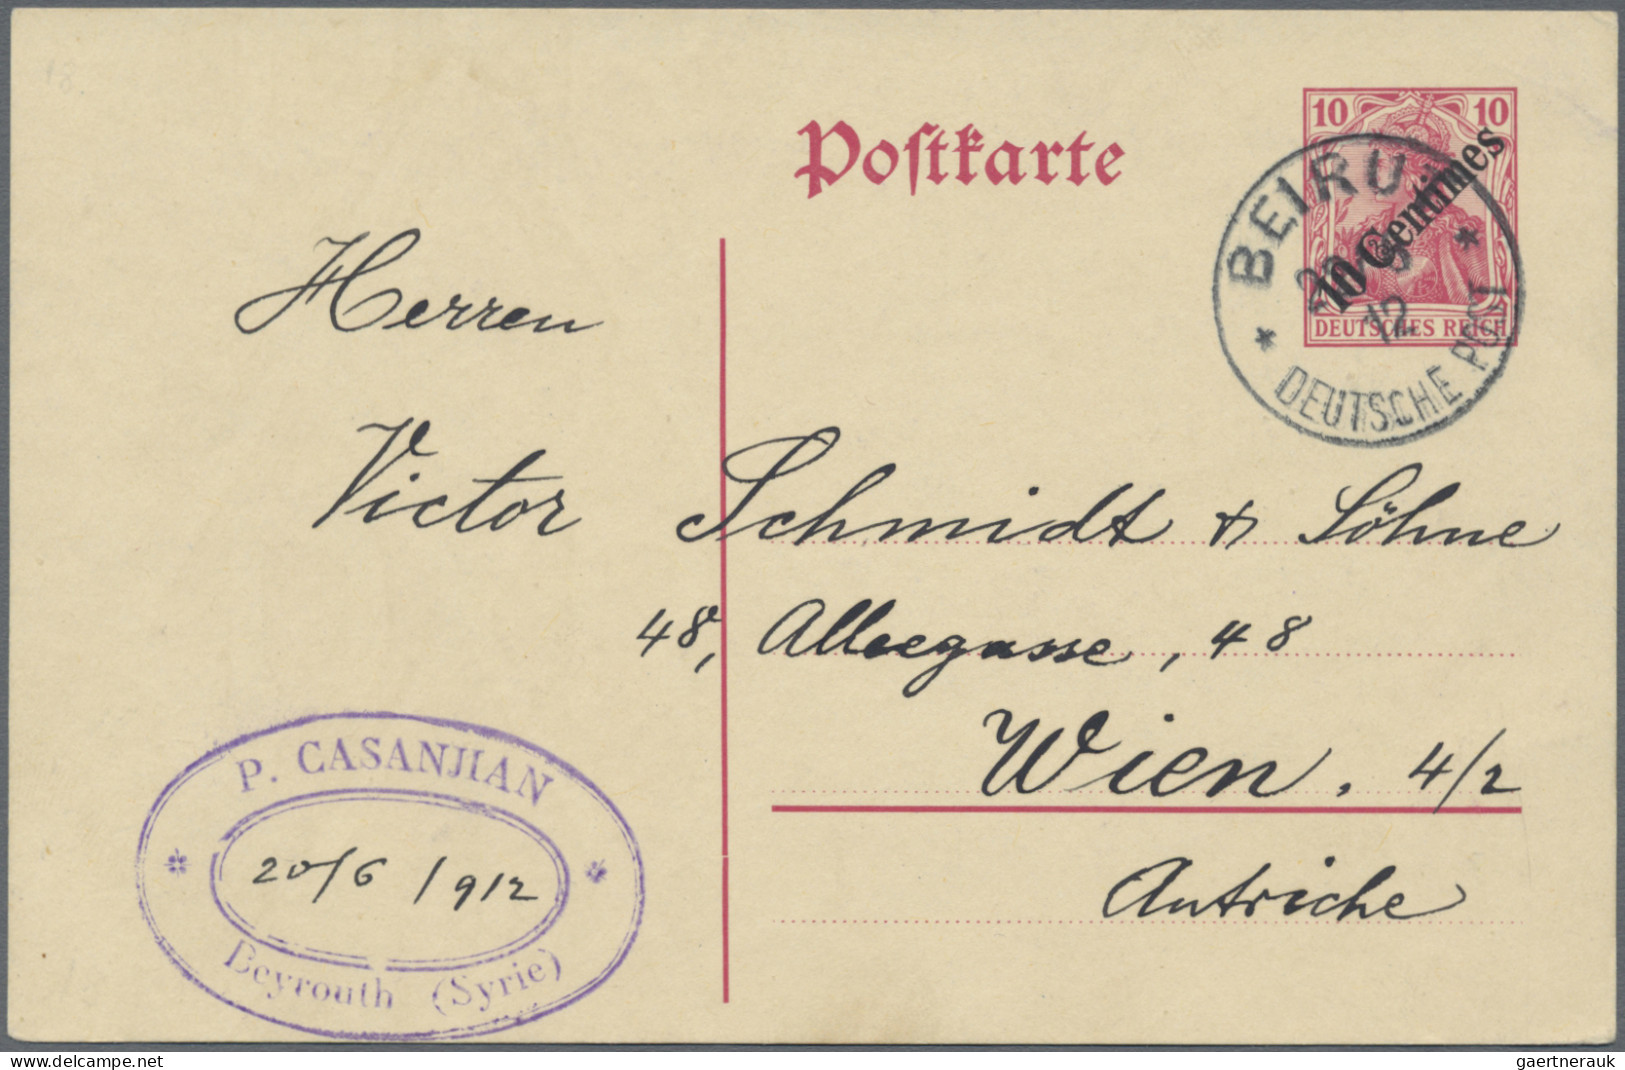 Postkarte
10 10
10 Centimes
DEUTSCHES REICH
BEIRUT
12
DEUTSCHE POST
Herren
Victor Schmidt & Söhne
48, Alleegasse, 48
Wien. 4/2
Autriche
P. CASANJIAN
20/6/912
Beyrouth (Syrie)
www.delcampe.net
gaertnerauk